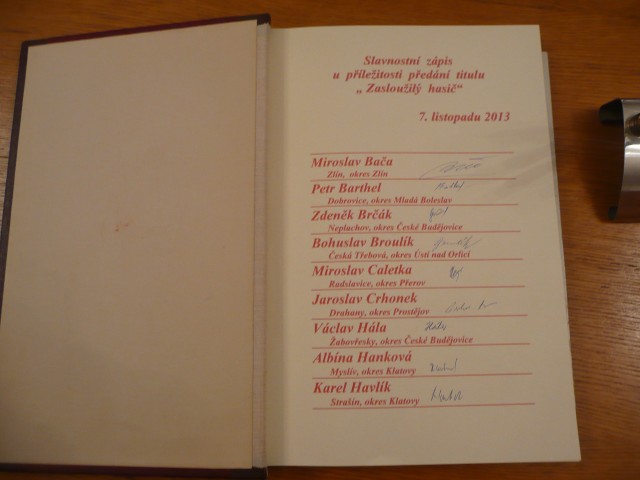 Slavnostní zápis
u příležitosti předání titulu
„ Zasloužilý hasič“
7. listopadu 2013
Miroslav Bača
Zlín, okres Zlín
Petr Barthel
Dobrovice, okres Mladá Boleslav
Zdeněk Brčák
Neplachov, okres České Budějovice
Bohuslav Broulík
Česká Třebová, okres Ústí nad Orlicí
Miroslav Caletka
Radslavice, okres Přerov
Jaroslav Crhonek
Drahany, okres Prostějov
Václav Hála
Žabovřesky, okres České Budějovice
Albína Hanková
Myslív, okres Klatovy
Karel Havlík
Strašín, okres Klatovy